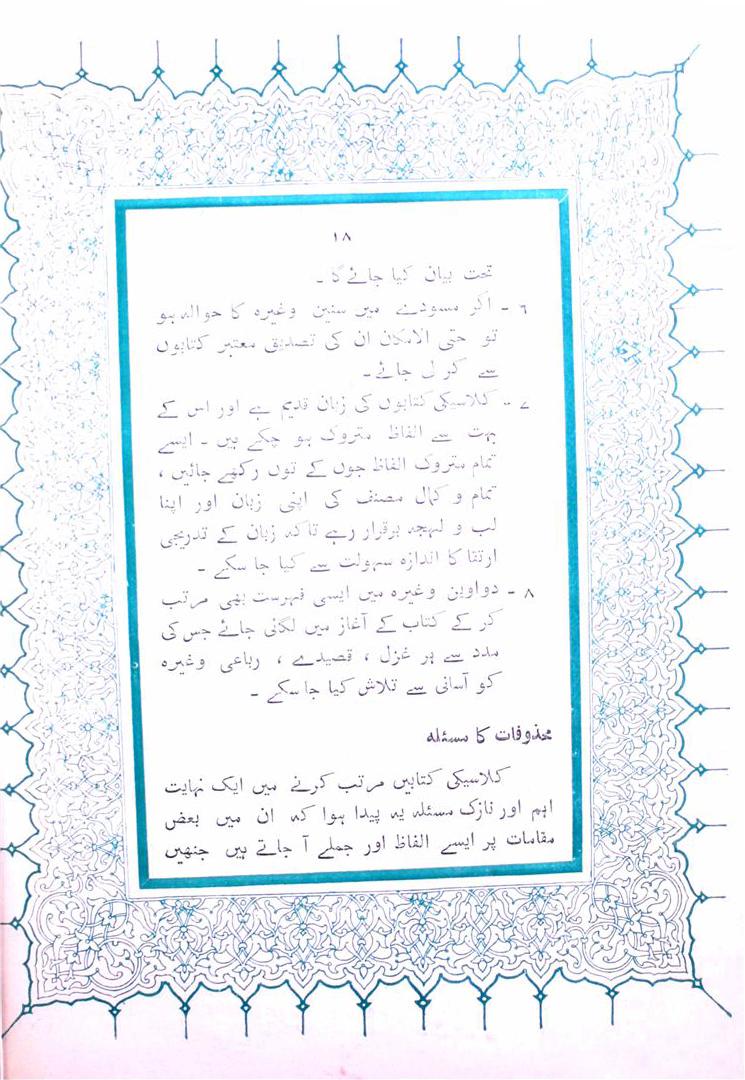 ۱۸
تحت بیان کیا جائے گا ۔
٦ ۔ اگر مسودے میں سنین وغیرہ کا حوالہ ہو
تو حتی الامکان ان کی تصدیق معتبر کتابوں
سے کر لی جائے ۔
۷ ۔ کلاسیکی کتابوں کی زبان قدیم ہے اور اس کے
بہت سے الفاظ متروک ہو چکے ہیں ۔ ایسے
تمام متروک الفاظ جوں کے توں رکھے جائیں ،
تمام و کمال مصنف کی اپنی زبان اور اپنا
لب و لہجہ برقرار رہے تاکہ زبان کے تدریجی
ارتقا کا اندازہ سہولت سے کیا جا سکے ۔
۸ ۔ دواوین وغیرہ میں ایسی فہرست بھی مرتب
کر کے کتاب کے آغاز میں لگائی جائے جس کی
مدد سے ہر غزل ، قصیدے ، رباعی وغیرہ
کو آسانی سے تلاش کیا جا سکے ۔
محذوفات کا مسئلہ
کلاسیکی کتابیں مرتب کرنے میں ایک نہایت
اہم اور نازک مسئلہ یہ پیدا ہوا کہ ان میں بعض
مقامات پر ایسے الفاظ اور جملے آ جاتے ہیں جنھیں